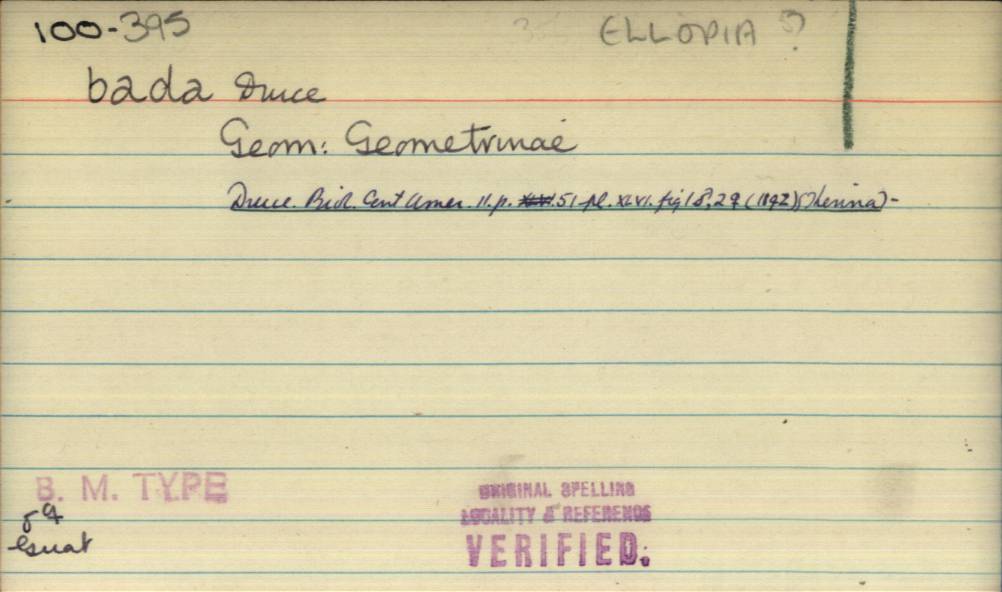 100-395
ELLOPIA ?
bada Druce
Geom: Geometrinae
Druce. Biol. Cent Amer. II. p. 51 pl. XLVI. fig 1♂, 2♀ (1892) (Therina) -
B. M. TYPE
♂♀
Guat
ORIGINAL SPELLING
LOCALITY & REFERENCE
VERIFIED.